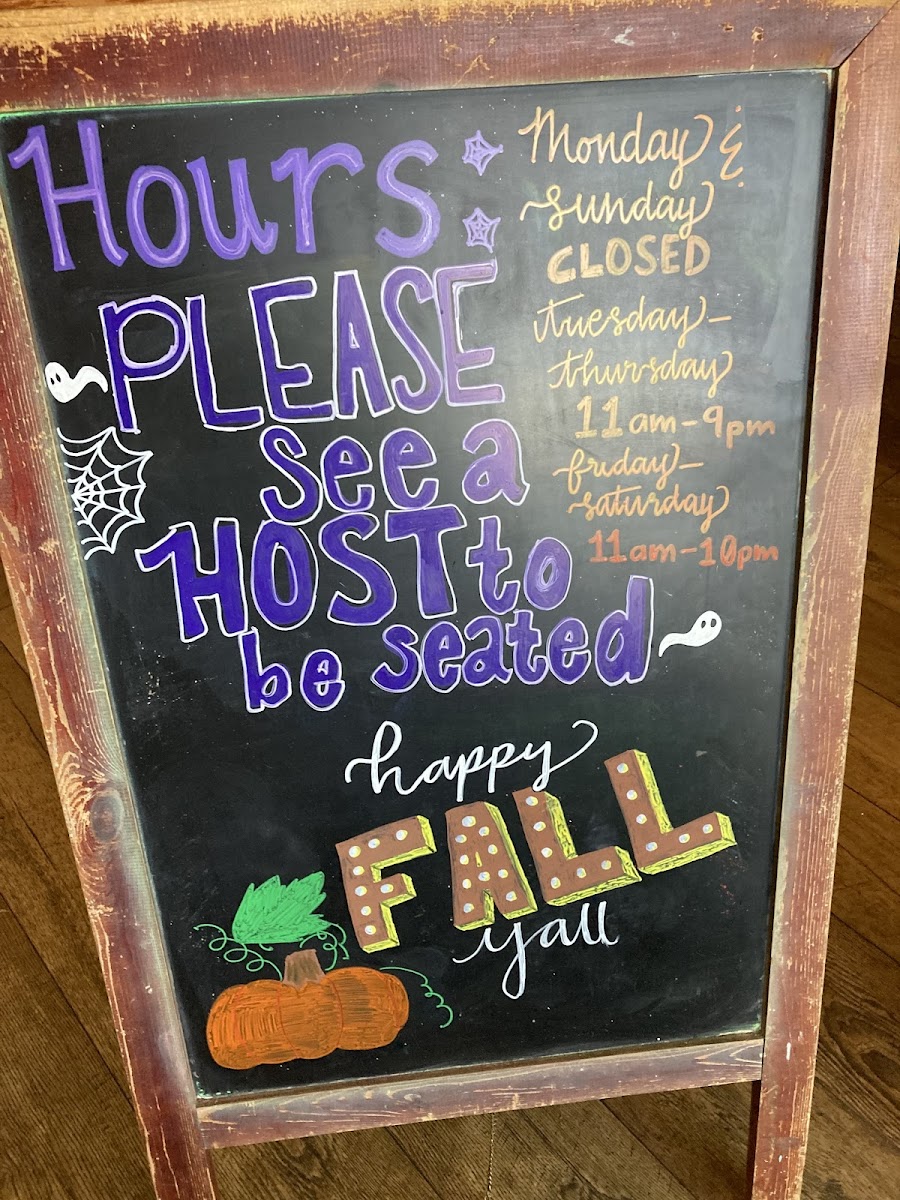 Hours:
Monday &
Sunday
CLOSED
Tuesday-
thursday
11am-9pm
friday-
saturday
11am-10pm
PLEASE
see a
HOST to
be seated
happy
FALL
y'all